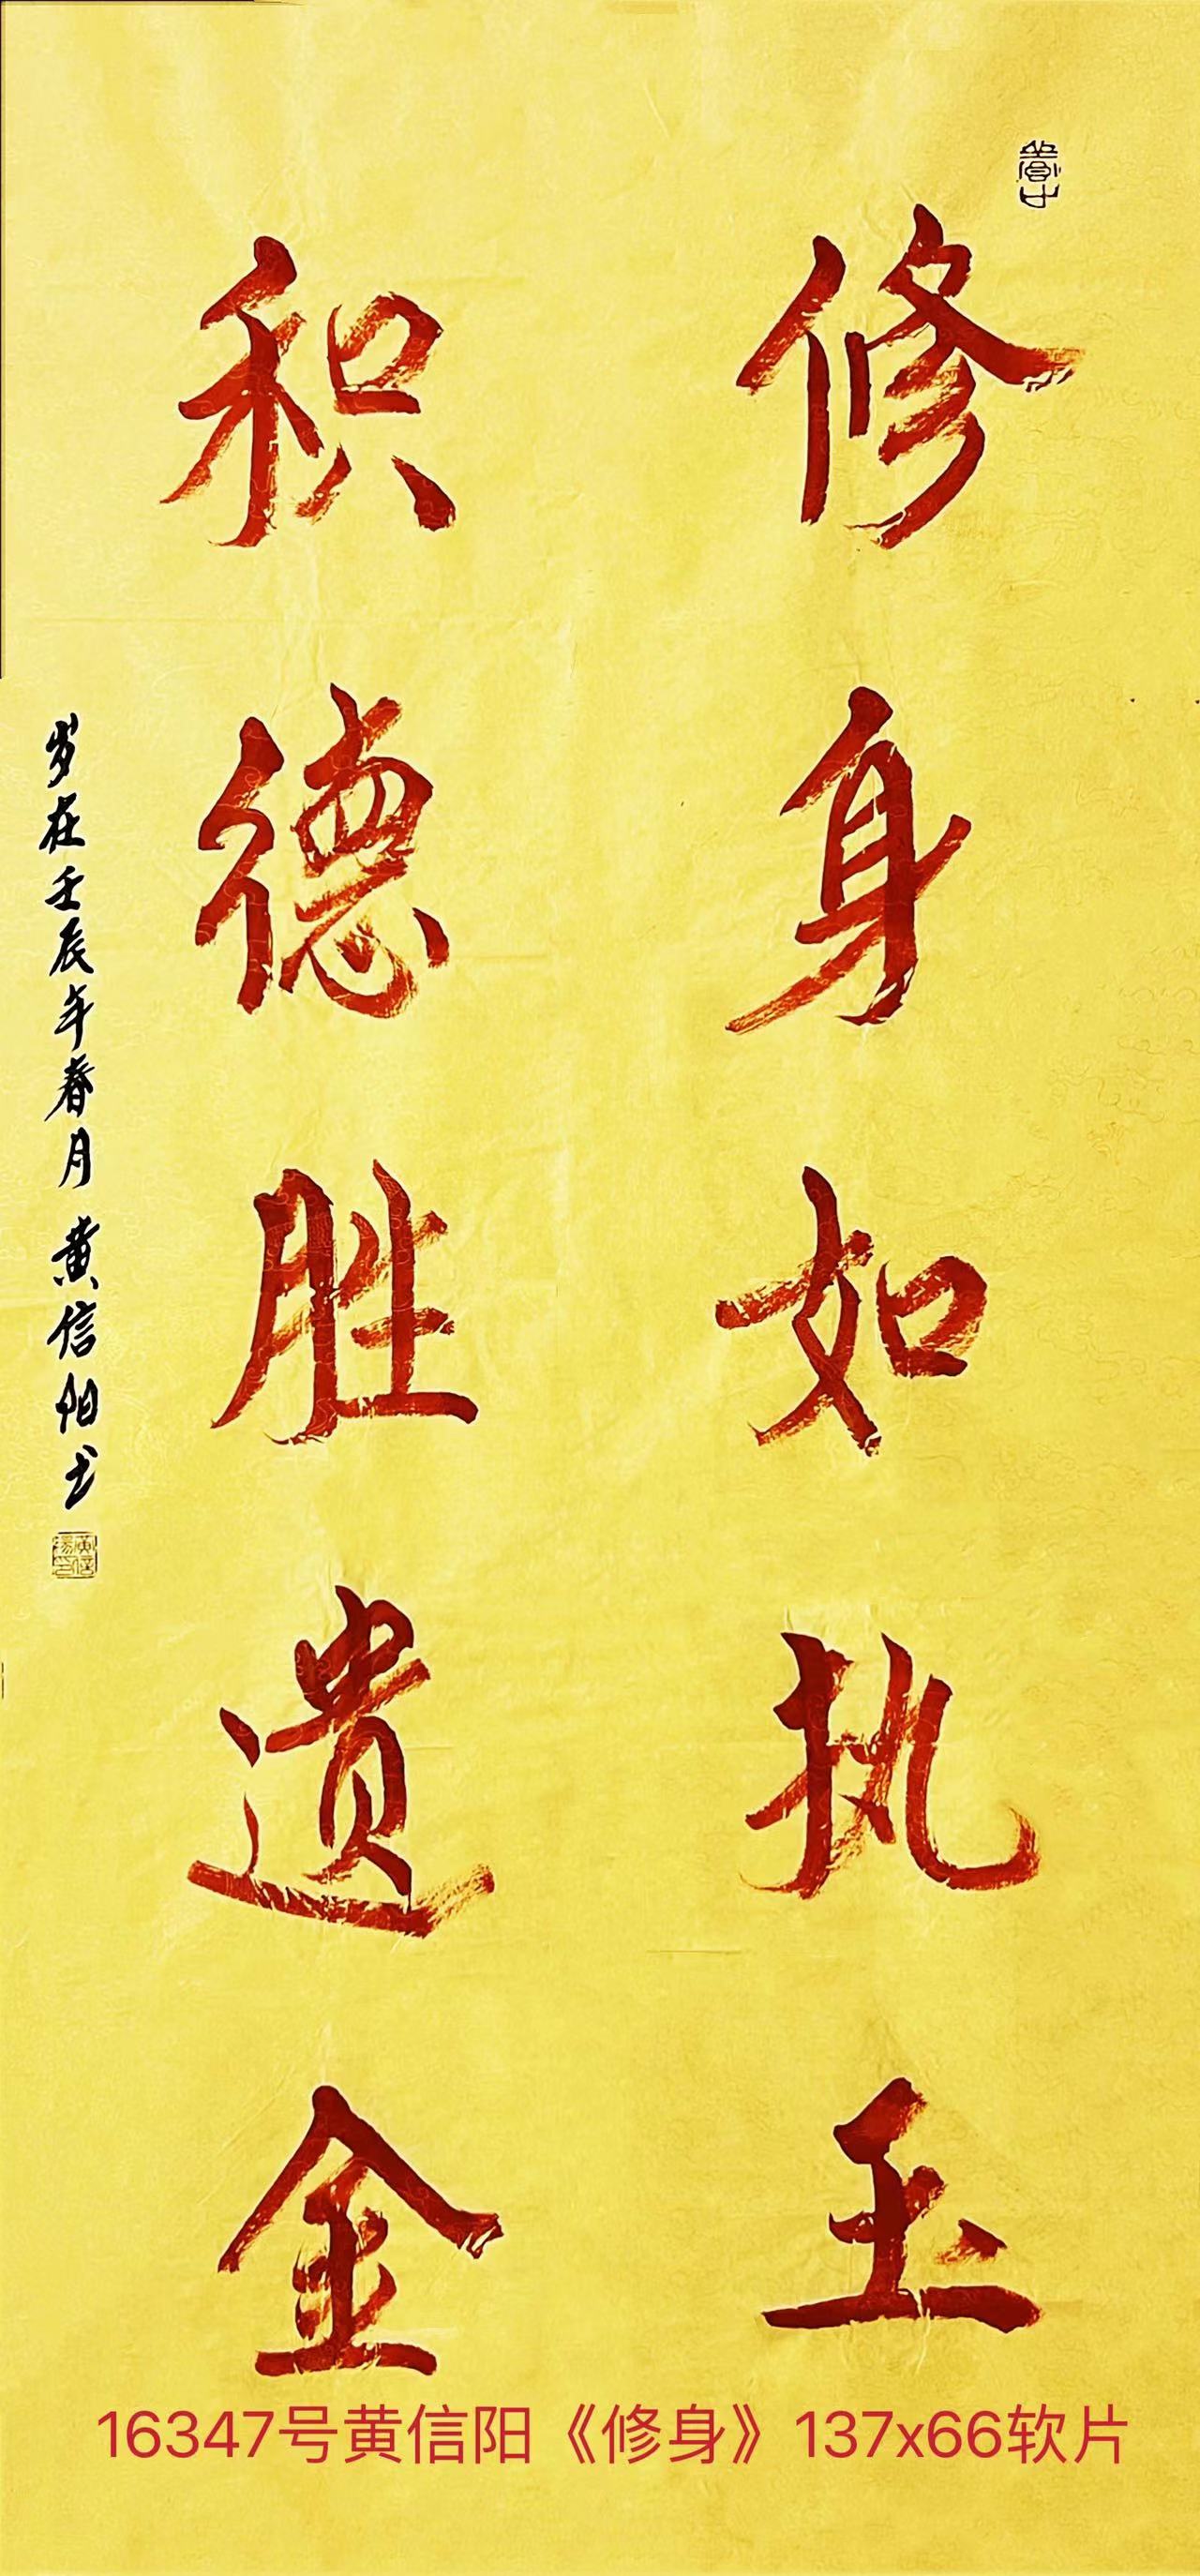 修身如执玉
积德胜遗金
岁在壬辰年春月 黄信阳书
黄信阳印
16347号黄信阳《修身》137x66软片